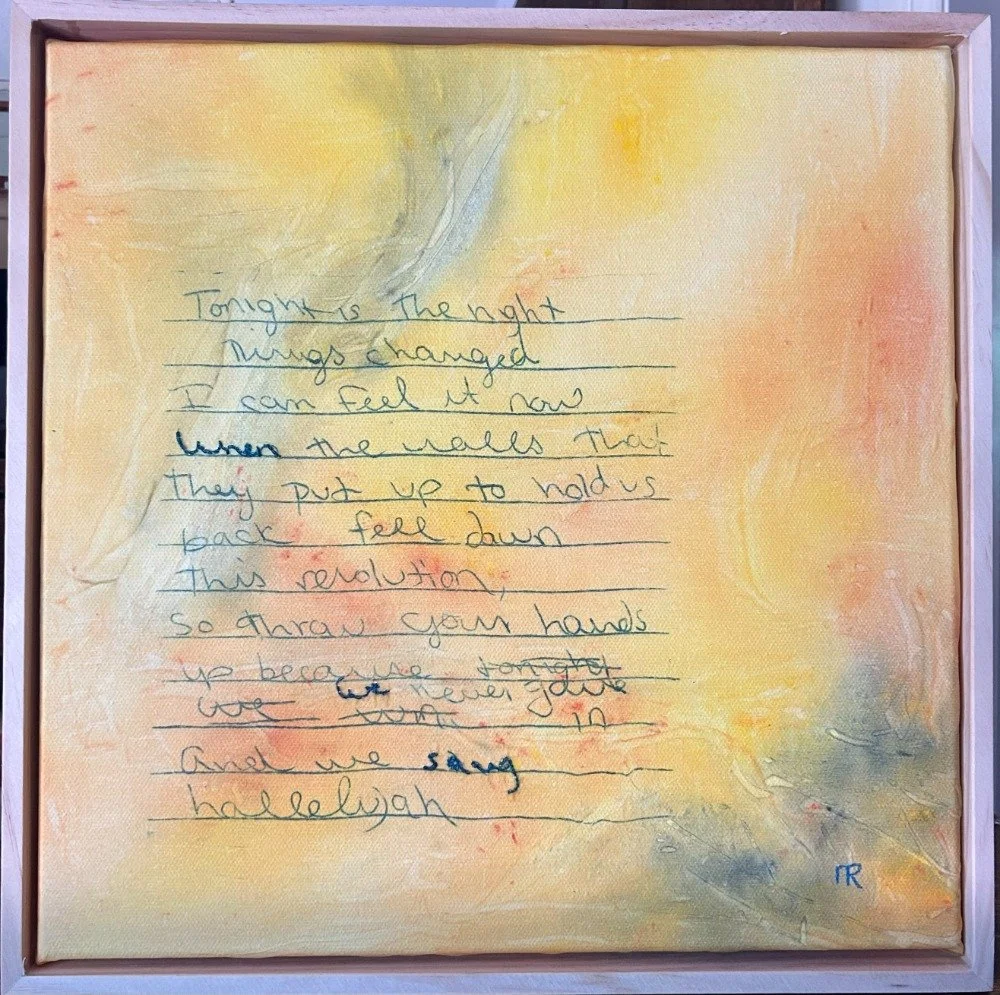 Tonight is the night
things changed
I can feel it now
when the walls that
they put up to hold us
back fell down
this revolution,
So throw your hands
up because tonight
we win we never gave in
And we sang
hallelujah
MR